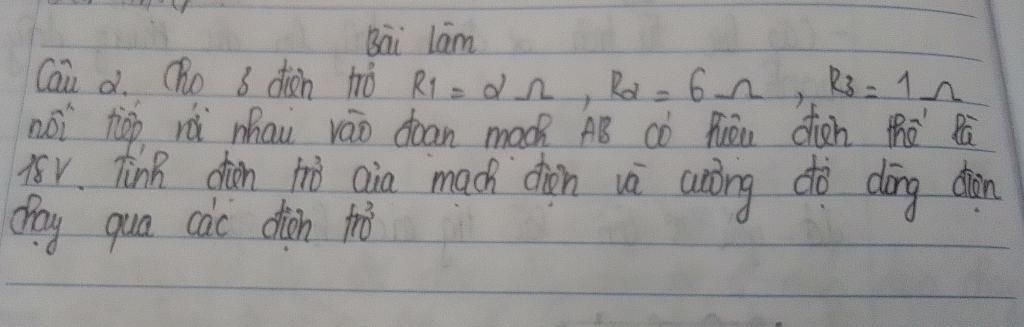 Bài làm
Câu 2. Cho 3 điện trở R1 = 2 Ω, R2 = 6 Ω, R3 = 1 Ω
nối tiếp với nhau vào đoạn mạch AB có hiệu điện thế là
18V. Tính điện trở của mạch điện và cường độ dòng điện
chạy qua các điện trở